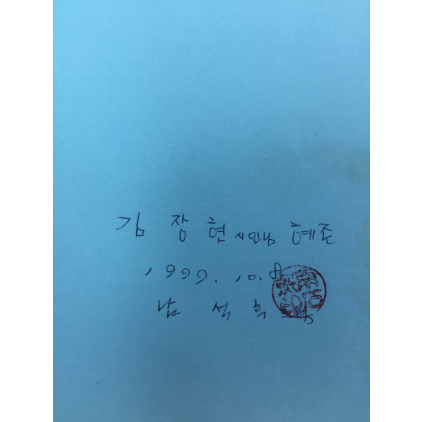 김 장 현 시인님 혜존
1999. 10. 8
남 석 희